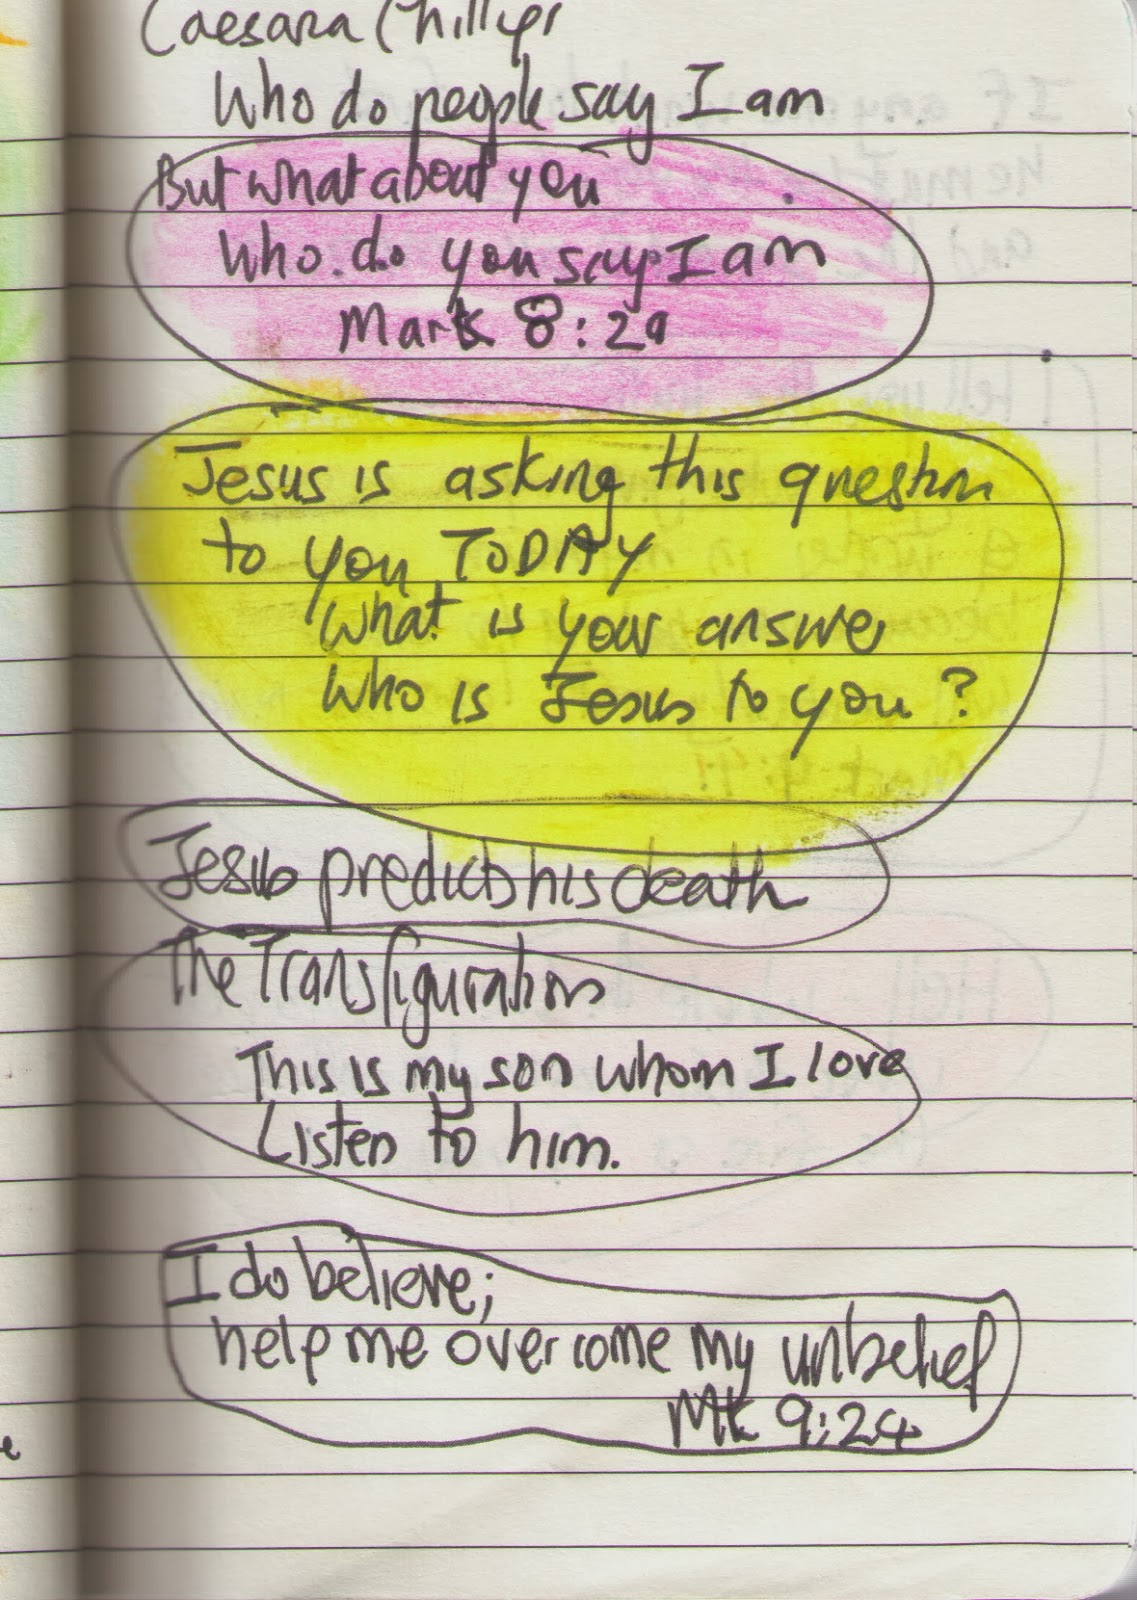 Caesarea Phillipi
Who do people say I am
But what about you
Who do you say I am
Mark 8:29
Jesus is asking this question
to you TODAY
What is your answer
Who is Jesus to you?
Jesus predicts his death
The Transfiguration
This is my son whom I love
Listen to him.
I do believe;
help me overcome my unbelief
Mk 9:24